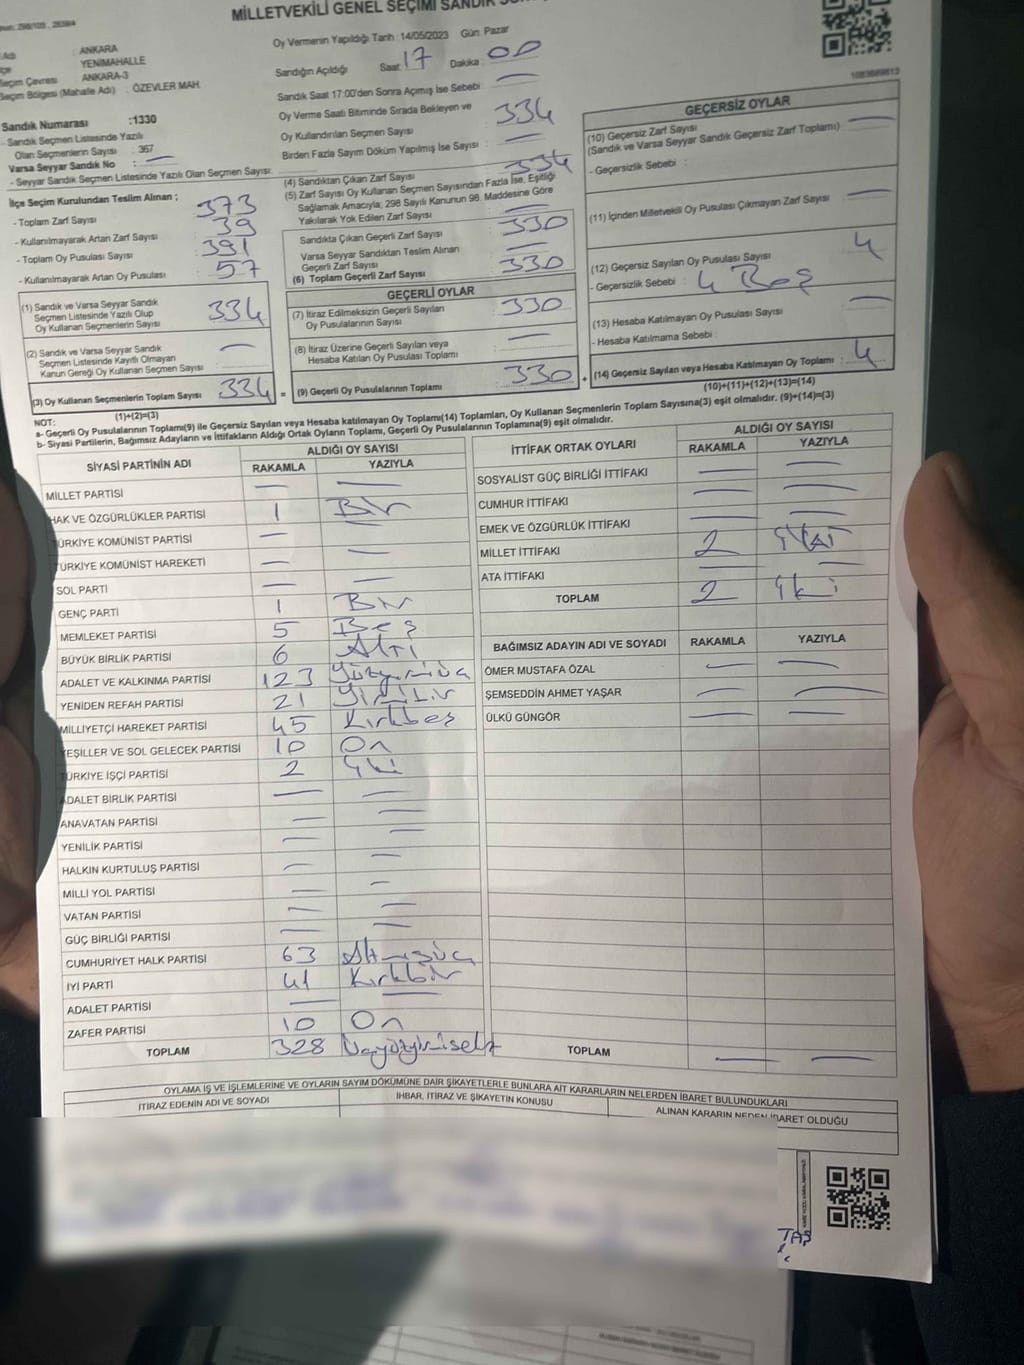 MİLLETVEKİLİ GENEL SEÇİMİ SANDIK
Oy Vermenin Yapıldığı Tarih : 14/05/2023 Gün: Pazar
: ANKARA
: YENİMAHALLE
Seçim Çevresi : ANKARA-3
Seçim Bölgesi (Mahalle Adı) : ÖZEVLER MAH.
Sandığın Açıldığı Saat: 17 Dakika : 00
Sandık Saat 17:00'den Sonra Açılmış İse Sebebi : —
Oy Verme Saati Bitiminde Sırada Bekleyen ve
Oy Kullandırılan Seçmen Sayısı : 334
Birden Fazla Sayım Döküm Yapılmış İse Sayısı : —
Sandık Numarası :1330
- Sandık Seçmen Listesinde Yazılı
Olan Seçmenlerin Sayısı : 367
Varsa Seyyar Sandık No : —
- Seyyar Sandık Seçmen Listesinde Yazılı Olan Seçmen Sayısı:
İlçe Seçim Kurulundan Teslim Alınan ;
- Toplam Zarf Sayısı : 373
- Kullanılmayarak Artan Zarf Sayısı : 39
- Toplam Oy Pusulası Sayısı : 391
- Kullanılmayarak Artan Oy Pusulası : 57
(1) Sandık ve Varsa Seyyar Sandık
Seçmen Listesinde Yazılı Olup
Oy Kullanan Seçmenlerin Sayısı : 334
(2) Sandık ve Varsa Seyyar Sandık
Seçmen Listesinde Kayıtlı Olmayan
Kanun Gereği Oy Kullanan Seçmen Sayısı : —
(3) Oy Kullanan Seçmenlerin Toplam Sayısı : 334
(1)+(2)=(3)
(4) Sandıktan Çıkan Zarf Sayısı : 334
(5) Zarf Sayısı Oy Kullanan Seçmen Sayısından Fazla İse, Eşitliği
Sağlamak Amacıyla; 298 Sayılı Kanunun 98. Maddesine Göre
Yakılarak Yok Edilen Zarf Sayısı : —
Sandıkta Çıkan Geçerli Zarf Sayısı : 330
Varsa Seyyar Sandıktan Teslim Alınan
Geçerli Zarf Sayısı : —
(6) Toplam Geçerli Zarf Sayısı : 330
GEÇERLİ OYLAR
(7) İtiraz Edilmeksizin Geçerli Sayılan
Oy Pusulalarının Sayısı : 330
(8) İtiraz Üzerine Geçerli Sayılan veya
Hesaba Katılan Oy Pusulası Toplamı : —
= (9) Geçerli Oy Pusulalarının Toplamı : 330 +
1083689813
GEÇERSİZ OYLAR
(10) Geçersiz Zarf Sayısı : —
(Sandık ve Varsa Seyyar Sandık Geçersiz Zarf Toplamı)
- Geçersizlik Sebebi :
(11) İçinden Milletvekili Oy Pusulası Çıkmayan Zarf Sayısı : —
(12) Geçersiz Sayılan Oy Pusulası Sayısı : 4
- Geçersizlik Sebebi : 4 Boş
(13) Hesaba Katılmayan Oy Pusulası Sayısı : —
- Hesaba Katılmama Sebebi :
(14) Geçersiz Sayılan veya Hesaba Katılmayan Oy Toplamı : 4
(10)+(11)+(12)+(13)=(14)
NOT:
a- Geçerli Oy Pusulalarının Toplamı(9) ile Geçersiz Sayılan veya Hesaba katılmayan Oy Toplamı(14) Toplamları, Oy Kullanan Seçmenlerin Toplam Sayısına(3) eşit olmalıdır. (9)+(14)=(3)
b- Siyasi Partilerin, Bağımsız Adayların ve İttifakların Aldığı Ortak Oyların Toplamı, Geçerli Oy Pusulalarının Toplamına(9) eşit olmalıdır.
SİYASİ PARTİNİN ADI ALDIĞI OY SAYISI
RAKAMLA YAZIYLA
MİLLET PARTİSİ — —
HAK VE ÖZGÜRLÜKLER PARTİSİ 1 Bir
TÜRKİYE KOMÜNİST PARTİSİ — —
TÜRKİYE KOMÜNİST HAREKETİ — —
SOL PARTİ — —
GENÇ PARTİ 1 Bir
MEMLEKET PARTİSİ 5 Beş
BÜYÜK BİRLİK PARTİSİ 6 Altı
ADALET VE KALKINMA PARTİSİ 123 Yüzyirmiüç
YENİDEN REFAH PARTİSİ 21 Yirmibir
MİLLİYETÇİ HAREKET PARTİSİ 45 Kırkbeş
YEŞİLLER VE SOL GELECEK PARTİSİ 10 On
TÜRKİYE İŞÇİ PARTİSİ 2 İki
ADALET BİRLİK PARTİSİ — —
ANAVATAN PARTİSİ — —
YENİLİK PARTİSİ — —
HALKIN KURTULUŞ PARTİSİ — —
MİLLİ YOL PARTİSİ — —
VATAN PARTİSİ — —
GÜÇ BİRLİĞİ PARTİSİ — —
CUMHURİYET HALK PARTİSİ 63 Altmışüç
İYİ PARTİ 41 Kırkbir
ADALET PARTİSİ — —
ZAFER PARTİSİ 10 On
TOPLAM 328 Üçyüzyirmisekiz
İTTİFAK ORTAK OYLARI ALDIĞI OY SAYISI
RAKAMLA YAZIYLA
SOSYALİST GÜÇ BİRLİĞİ İTTİFAKI — —
CUMHUR İTTİFAKI — —
EMEK VE ÖZGÜRLÜK İTTİFAKI — —
MİLLET İTTİFAKI 2
ATA İTTİFAKI — —
TOPLAM 2 İki
BAĞIMSIZ ADAYIN ADI VE SOYADI RAKAMLA YAZIYLA
ÖMER MUSTAFA ÖZAL — —
ŞEMSEDDİN AHMET YAŞAR — —
ÜLKÜ GÜNGÖR — —
TOPLAM — —
OYLAMA İŞ VE İŞLEMLERİNE VE OYLARIN SAYIM DÖKÜMÜNE DAİR ŞİKAYETLERLE BUNLARA AİT KARARLARIN NELERDEN İBARET BULUNDUKLARI
İTİRAZ EDENİN ADI VE SOYADI İHBAR, İTİRAZ VE ŞİKAYETİN KONUSU ALINAN KARARIN NEDEN İBARET OLDUĞU
TAŞ